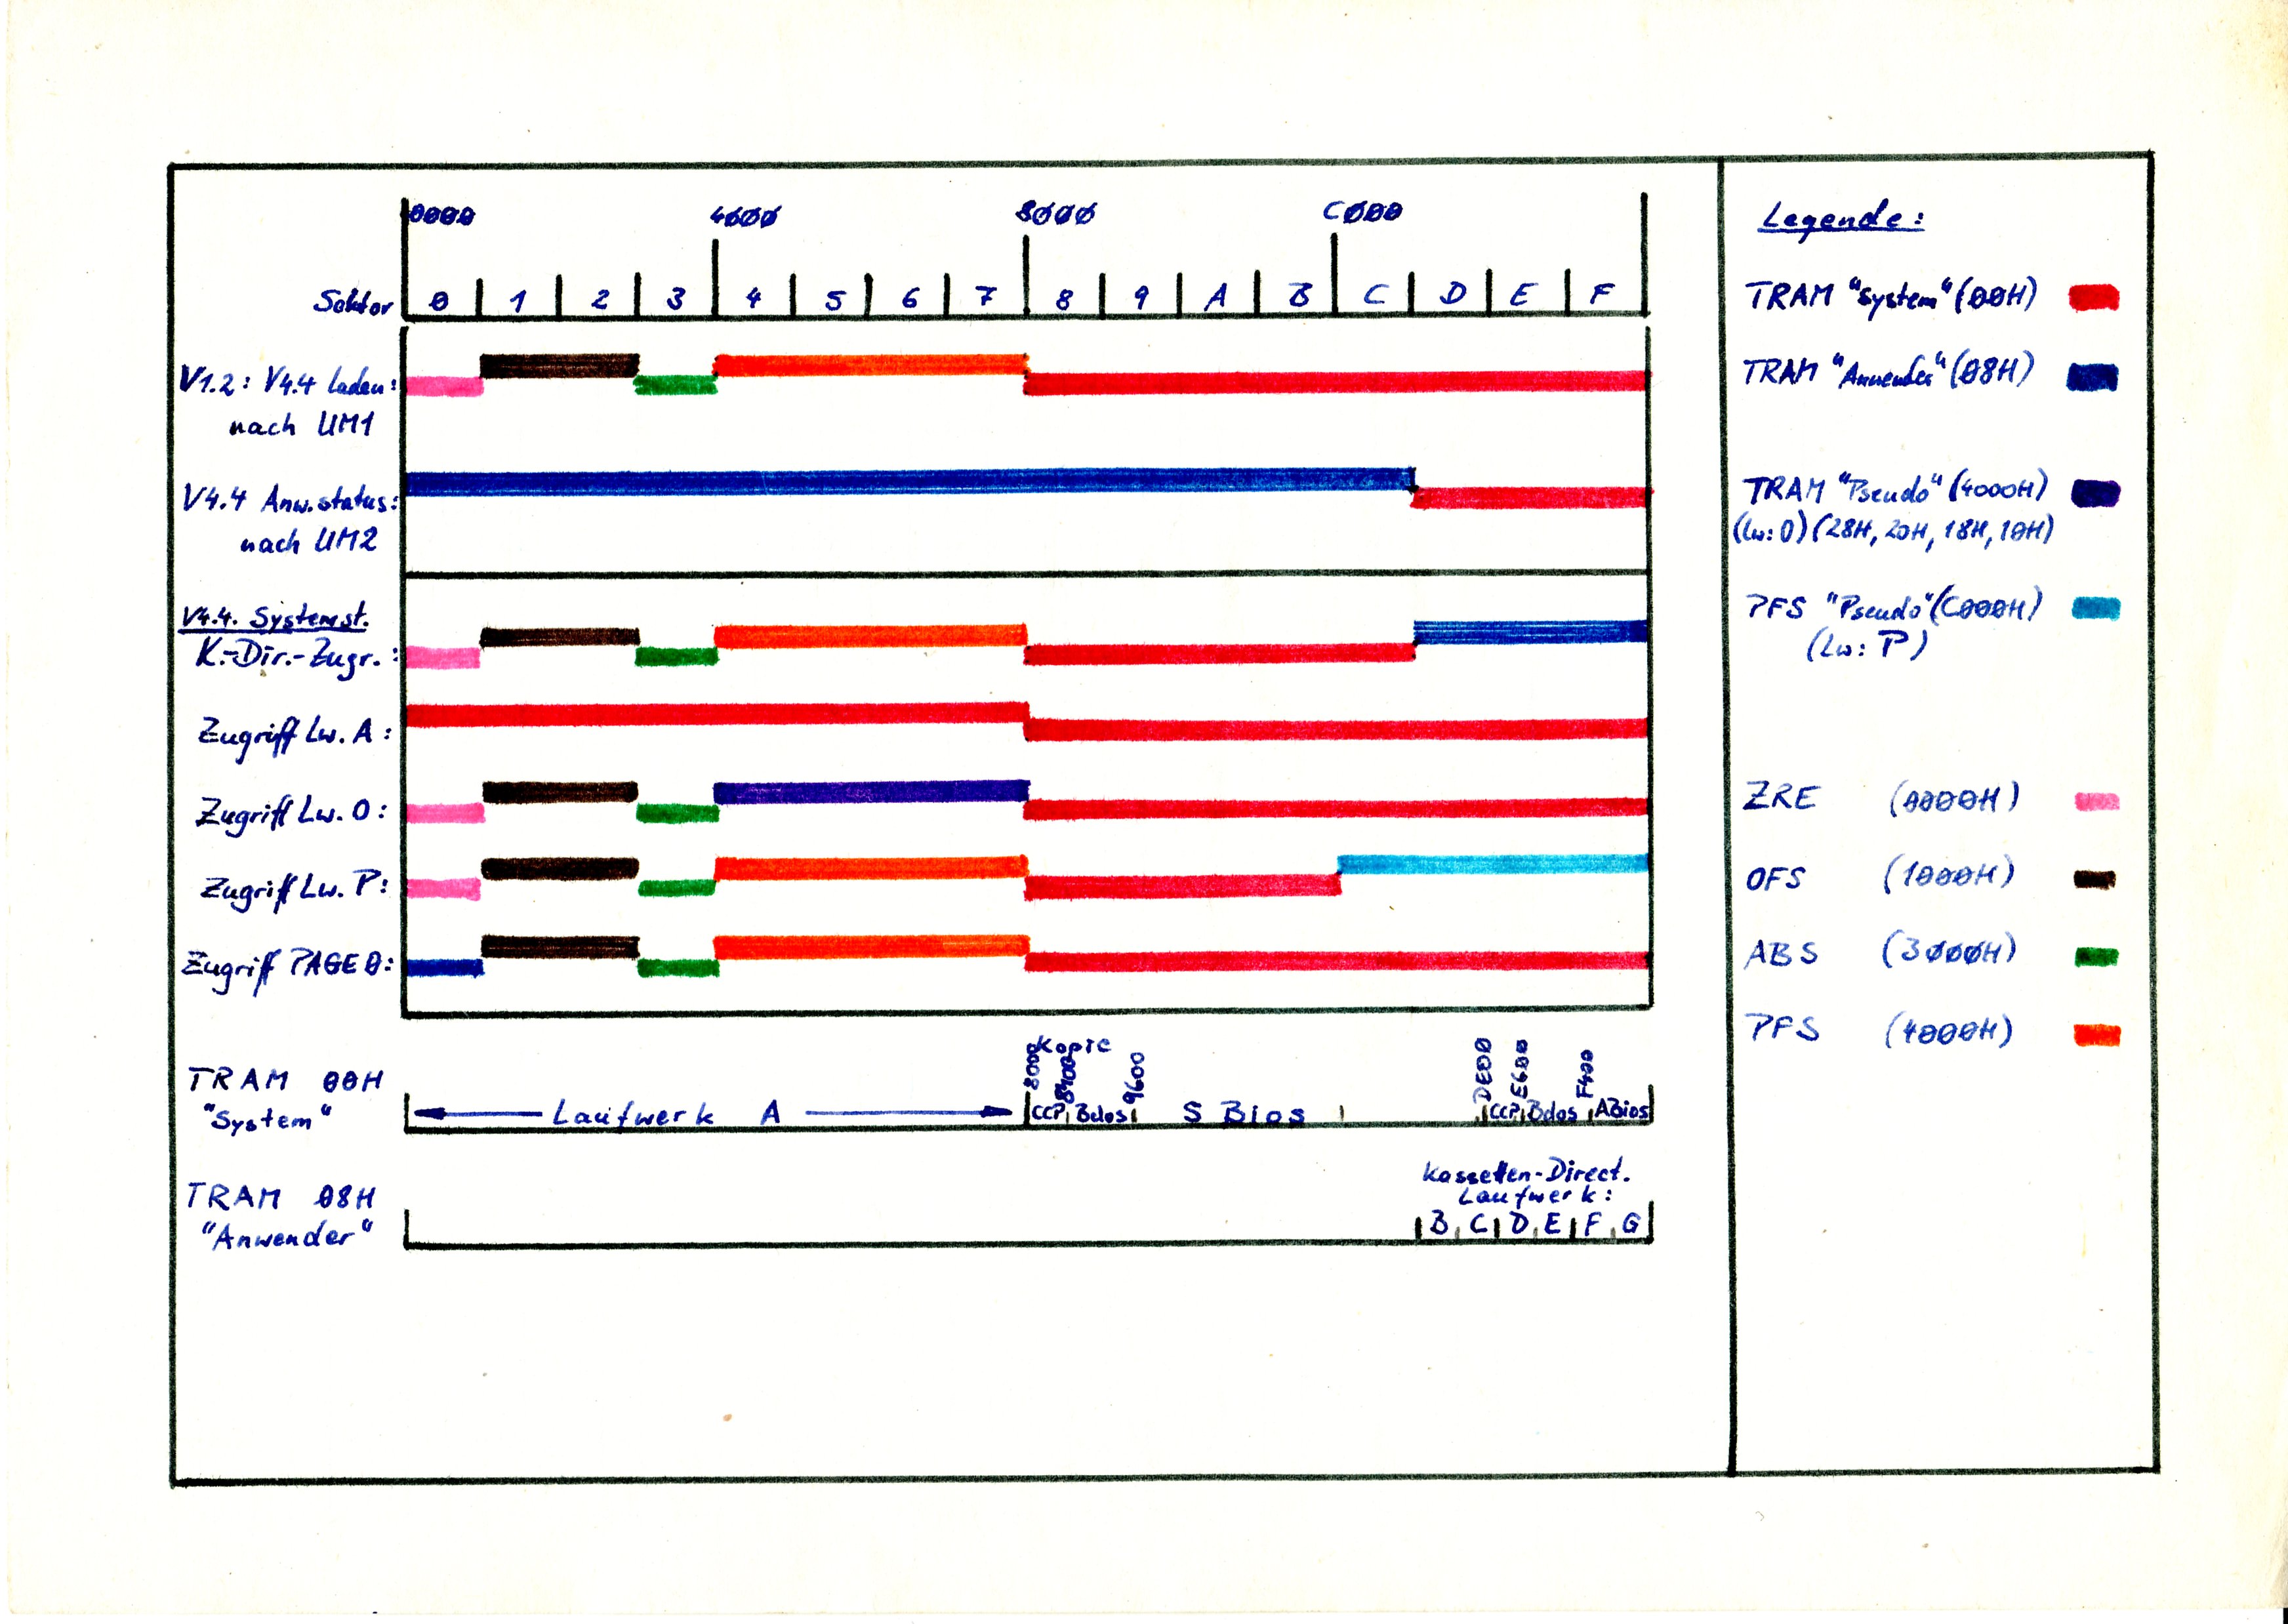 0000 4000 8000 C000
Sektor 0 1 2 3 4 5 6 7 8 9 A B C D E F
V1.2: V4.4 laden:
nach UM1
V4.4 Anw.status:
nach UM2
V4.4. Systemst.
K.-Dir.-Zugr.:
Zugriff Lw. A:
Zugriff Lw. O:
Zugriff Lw. P:
Zugriff PAGE 0:
TRAM 00H
"System"
Laufwerk A
Kopie
8000 8400 9600 DE00 E600 F400
CCP Bdos S Bios CCP Bdos ABios
TRAM 08H
"Anwender"
Kassetten-Direct.
Laufwerk:
B C D E F G
Legende:
TRAM "System" (00H)
TRAM "Anwender" (08H)
TRAM "Pseudo" (4000H)
(Lw: O) (28H, 20H, 18H, 10H)
PFS "Pseudo" (C000H)
(Lw: P)
ZRE (0000H)
OFS (1000H)
ABS (3000H)
PFS (4000H)